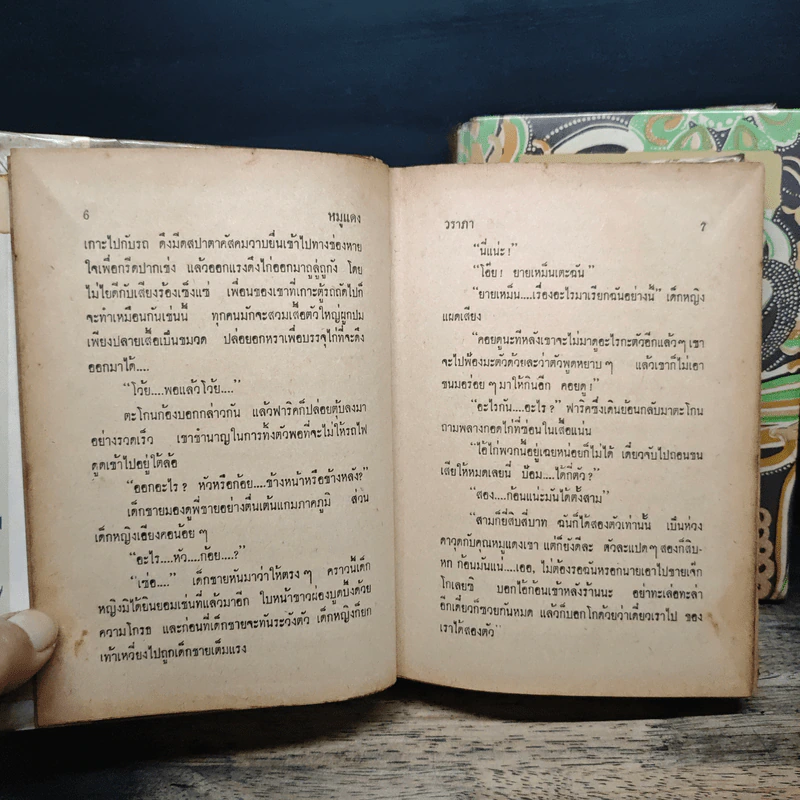 6 หมูแดง
เกาะไปกับรถ ดึงมีดสปาตาคัสคมวาบยื่นเข้าไปทางช่องหาย
ใจเพื่อกรีดปากเข่ง แล้วออกแรงดึงไก่ออกมาถูลู่ถูกัง โดย
ไม่ไยดีกับเสียงร้องเซ็งแซ่ เพื่อนของเขาที่เกาะตู้รถถัดไปก็
จะทำเหมือนกันเช่นนี้ ทุกคนมักจะสวมเสื้อตัวใหญ่ผูกปม
เพียงปลายเสื้อเป็นขมวด ปล่อยอกหราเพื่อบรรจุไก่ที่จะดึง
ออกมาได้....
“โว้ย....พอแล้วโว้ย....”
ตะโกนก้องบอกกล่าวกัน แล้วฟาริคก็ปล่อยตุ้บลงมา
อย่างรวดเร็ว เขาชำนาญในการทิ้งตัวพอที่จะไม่ให้รถไฟ
ดูดเข้าไปอยู่ใต้ล้อ
“ออกอะไร? หัวหรือก้อย....ข้างหน้าหรือข้างหลัง?”
เด็กชายมองดูพี่ชายอย่างตื่นเต้นแกมภาคภูมิ ส่วน
เด็กหญิงเอียงคอน้อย ๆ
“อะไร....หัว....ก้อย....?”
“เซ่อ....” เด็กชายหันมาว่าให้ตรง ๆ คราวนี้เด็ก
หญิงมิได้ยินยอมเช่นที่แล้วมาอีก ใบหน้าขาวผ่องบูดบึ้งด้วย
ความโกรธ และก่อนที่เด็กชายจะทันระวังตัว เด็กหญิงก็ยก
เท้าเหวี่ยงไปถูกเด็กชายเต็มแรง
วราภา 7
“นี่แน่ะ!”
“โอ๊ย! ยายเหม็นเตะฉัน”
“ยายเหม็น....เรื่องอะไรมาเรียกฉันอย่างนี้” เด็กหญิง
แผดเสียง
“คอยดูนะทีหลังเขาจะไม่มาดูอะไรกะตัวอีกแล้วๆ เขา
จะไปฟ้องมะตัวด้วยละว่าตัวพูดหยาบ ๆ แล้วเขาก็ไม่เอา
ขนมอร่อย ๆ มาให้กินอีก คอยดู!”
“อะไรกัน....อะไร?” ฟาริคซึ่งเดินย้อนกลับมาตะโกน
ถามพลางกอดไก่ที่ซ่อนในเสื้อแน่น
“ไอ้ไก่พวกนี้อยู่เฉยหน่อยก็ไม่ได้ เดี๋ยวจับไปถอนขน
เสียให้หมดเลยนี่ ป้อม....ได้กี่ตัว?”
“สอง....ก้อนแน่ะมันได้ตั้งสาม”
“สามก็ยี่สิบสี่บาท ฉันก็ได้สองตัวเท่านั้น เป็นห่วง
ดาวุดกับคุณหมูแดงเขา แต่ก็ยังดีละ ตัวละแปดๆ สองก็สิบ-
หก ก้อนมันแน่....เออ, ไม่ต้องรอฉันหรอกนายเอาไปขายเจ๊ก
โกเลยซิ บอกไอ้ก้อนเข้าหลังร้านนะ อย่าทะเล่อทะล่า
อีกเดี๋ยวก็ซวยกันหมด แล้วก็บอกโกด้วยว่าเดี๋ยวเราไป ของ
เราได้สองตัว”